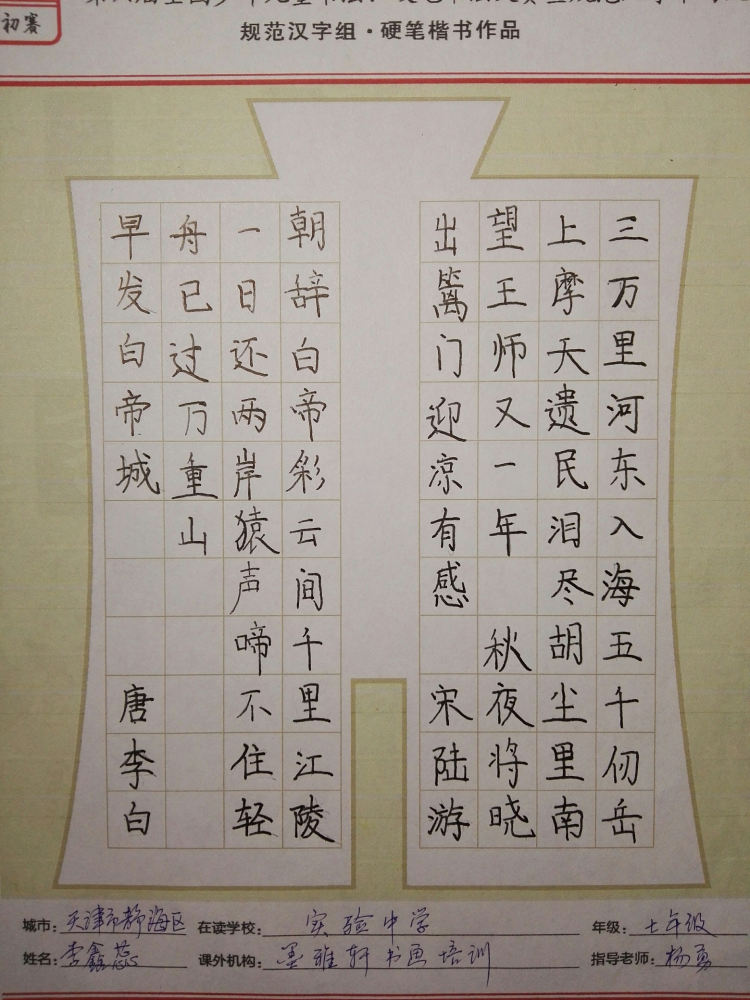 初赛
规范汉字组·硬笔楷书作品
三万里河东入海五千仞岳
上摩天遗民泪尽胡尘里南
望王师又一年 秋夜将晓
出篱门迎凉有感 宋陆游
朝辞白帝彩云间千里江陵
一日还两岸猿声啼不住轻
舟已过万重山
早发白帝城 唐李白
城市：天津市静海区 在读学校：实验中学 年级：七年级
姓名：李鑫蕊 课外机构：墨雅轩书画培训 指导老师：杨勇